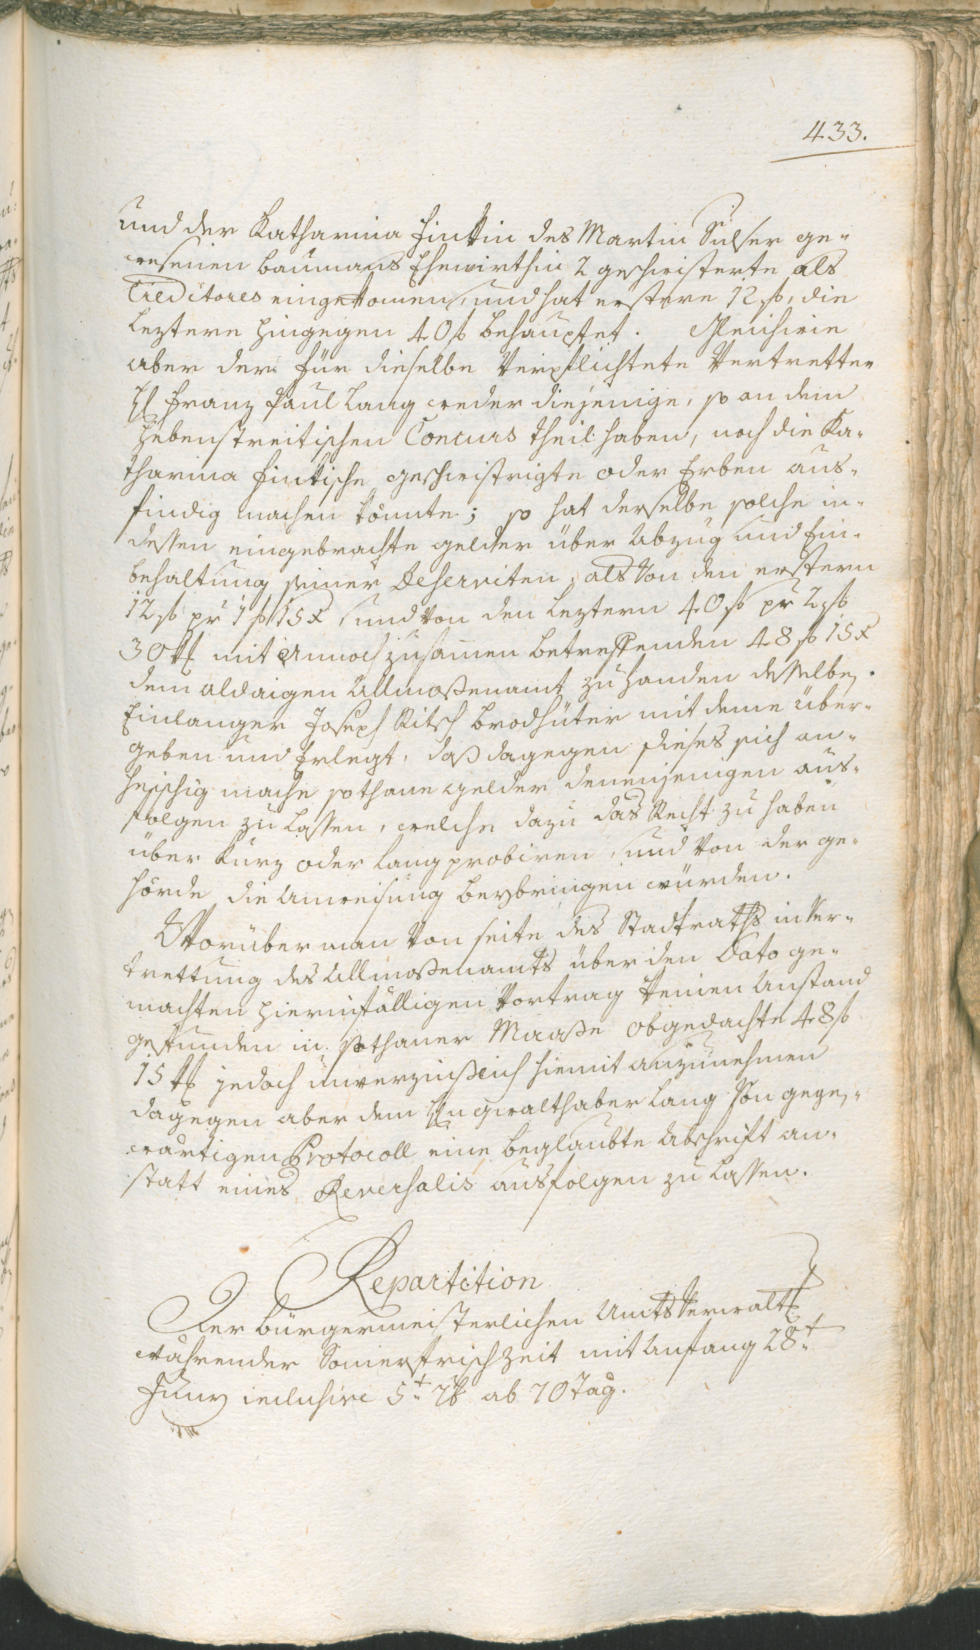 433.
und der Katharina Finkin des Martin Sulser ge-
wesenen baumans Ehewirthin 2 geschwisterte als
Creditores eingekomen, und hat erstere 12 f, die
leztere hingegen 40 f behauptet. Gleichwie
aber der für dieselbe Verpflichtete Vertretter
H Franz Paul Lang weder diejenige, so an dem
Hebenstreitischen Concurs theil haben, noch die Ka-
tharina Finkische geschwistrigte oder Erben aus-
findig machen könnte; so hat derselbe solche in-
dessen eingebrachte gelder über Abzug und Ein-
behaltung seiner Deserviten, als Von den erstern
12 f pr 1 f 15 x, und von den leztern 40 f pr 2 f
30 x mit annoch zusamen betreffenden 48 f 15 x
dem aldaigen Allmosenamt zu Handen desselben
Einlanger Joseph Ritsch brodhüter mit deme über-
geben und Erlegt, daß dagegen dieses sich an-
heischig mache sothane gelder denenjenigen aus-
folgen zu lassen, welche dazu das Recht zu haben
über kurz oder lang probiren, und von der ge-
hörde die Anweisung beybringen würden.
Worüber man Von seite des Stadtraths in Ver-
trettung des Allmosenamts über den Dato ge-
machten hierinfälligen Vortrag keinen Anstand
gefunden in sothaner Maaße obgedachte 48 f
15 x jedoch unverzinslich hiemit anzunehmen
dagegen aber dem Hn gwalthaber Lang Von gegen-
wärtigen Protocoll eine beglaubte Abschrift an-
statt eines Reversalis ausfolgen zu lassen.
Repartition
Der bürgermeisterlichen Amts Verwalt
währender Somersfrischzeit mit Anfang 28t
Juny inclusive 5t 7b ab 70 Tag.